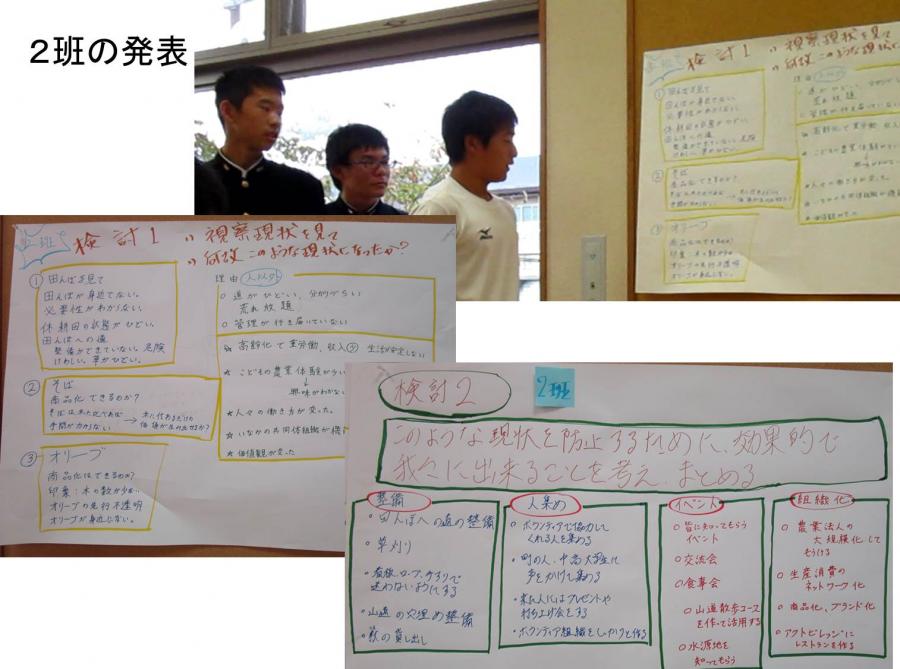 2班の発表
2班
検討1
〃視察現状を見て
〃何故このような現状になったか?
① 田んぼを見て
田んぼが身近でない。
必要性がわからない。
休耕田の状態がひどい。
田んぼへの道
整備ができていない。危険
けわしい。草がひどい。
② そば
商品化できるのか?
手間がかからない
③ オリーブ
商品化はできるのか?
印象:木の数が少
オリーブの先行不透明
オリーブが身近じゃない。
理由
○ 道がひどい、分かりづらい
荒れ放題
○ 管理が行き届いていない
☆ 高齢化で重労働、収入 生活が安定しない
★ こどもの農業体験が少
興味がわかない
★人々の働き方が変った。
☆ いなかの共同体組織が
★価値観が変った
検討2
2班
このような現状を防止するために、効果的で
我々に出来ることを考え、まとめる
整備
• 田んぼへの道の整備
• 草刈り
• 看板、ロープ、手すりで
迷わないようにする
• 山道の穴埋め整備
• 鍬の貸し出し
人集め
• ボランティアで協力して
くれる人を集める
• 町の人、中高大学生に
声をかけて集める
• 来た人にはプレゼントや
打ち上げ会をする
• ボランティア組織をしっかりと作る
イベント
○ 皆に知ってもらう
イベント
○ 交流会
○ 食事会
○ 山道散歩コース
を作って活用する
○ 水源地を
知ってもらう
組織化
○ 農業法人の
大規模化して
もうける
○ 生産消費の
ネットワーク化
○ 商品化、ブランド化
○ アクトビレッジに
レストランを作る